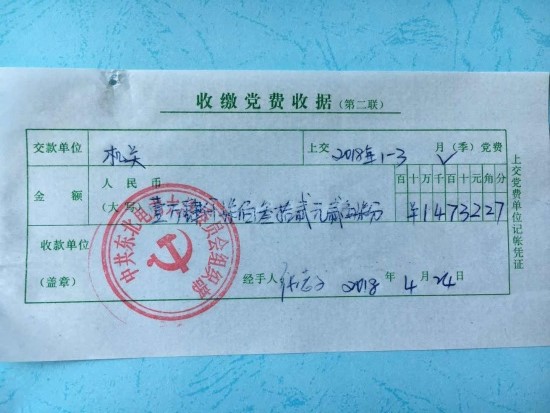 收缴党费收据(第二联)
交款单位 机关 上交 2018年1-3 月(季)党费
金额 人民币(大写) 壹万肆仟柒佰叁拾贰元贰角柒分
百十万千百十元角分
¥1473227
收款单位(盖章) 经手人 2018年4月24日
上交党费单位记帐凭证
中共东北电 委员会组织部